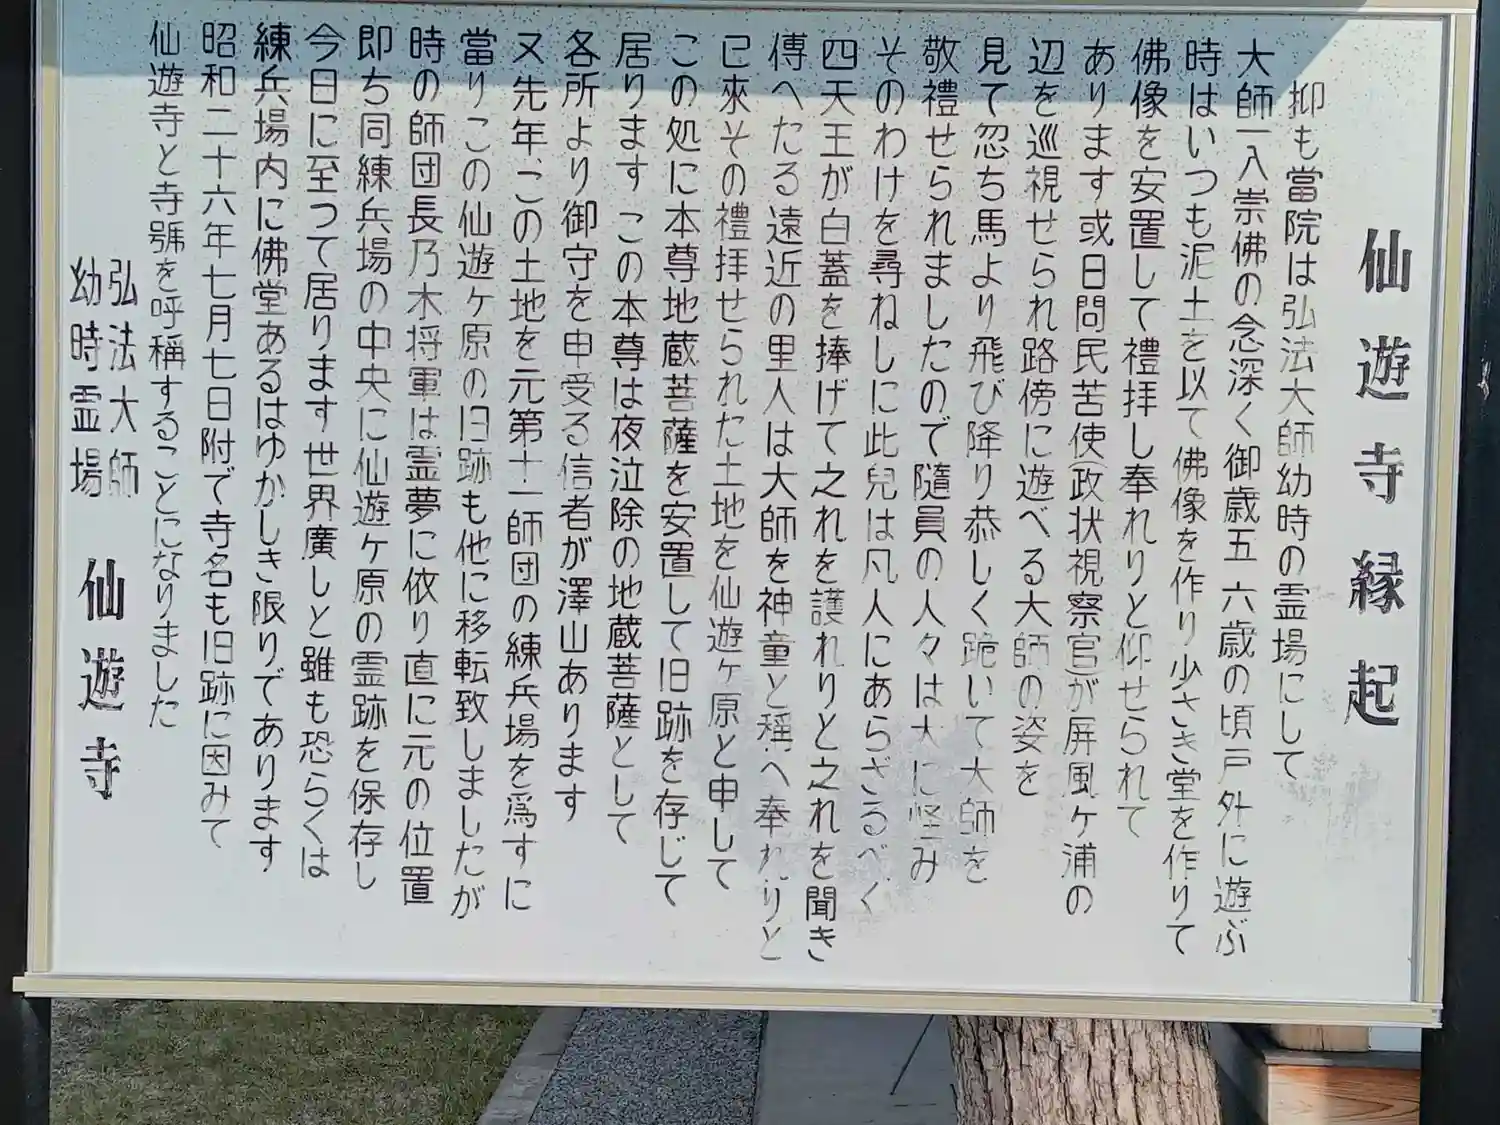 仙遊寺縁起
抑も當院は弘法大師幼時の霊場にして
大師一入崇佛の念深く御歳五六歳の頃戸外に遊ぶ
時はいつも泥土を以て佛像を作り少さき堂を作りて
佛像を安置して禮拝し奉れりと仰せられて
あります或日問民苦使(政状視察官)が屏風ヶ浦の
辺を巡視せられ路傍に遊べる大師の姿を
見て忽ち馬より飛び降り恭しく跪いて大師を
敬禮せられましたので隨員の人々は大に怪み
そのわけを尋ねしに此兒は凡人にあらざるべく
四天王が白蓋を捧げて之れを護れりと之れを聞き
傳へたる遠近の里人は大師を神童と稱へ奉れりと
已來その禮拝せられた土地を仙遊ヶ原と申して
この処に本尊地蔵菩薩を安置して旧跡を存じて
居ります この本尊は夜泣除の地蔵菩薩として
各所より御守を申受る信者が澤山あります
又先年、この土地を元第十一師団の練兵場を爲すに
當りこの仙遊ヶ原の旧跡も他に移転致しましたが
時の師団長乃木将軍は霊夢に依り直に元の位置
即ち同練兵場の中央に仙遊ヶ原の霊跡を保存し
今日に至つて居ります 世界廣しと雖も恐らくは
練兵場内に佛堂あるはゆかしき限りであります
昭和二十六年七月七日附で寺名も旧跡に因みて
仙遊寺と寺號を呼稱することになりました
弘法大師
幼時霊場
仙遊寺